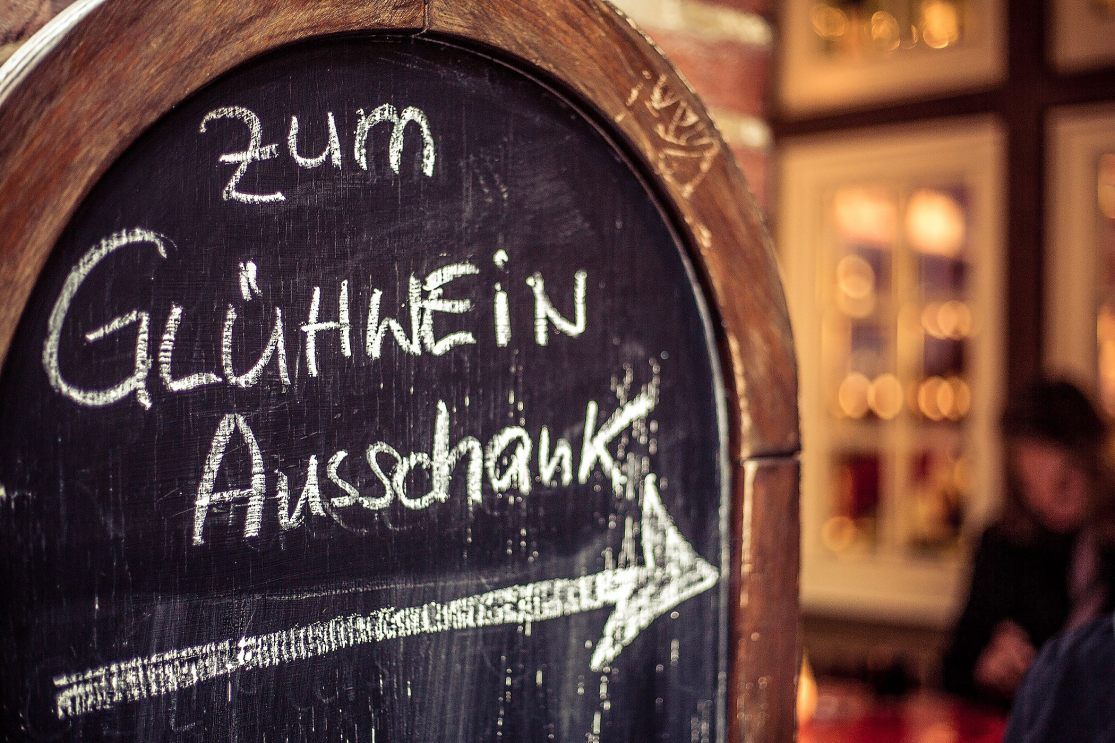 zum
GLÜHWEiN
Ausschank